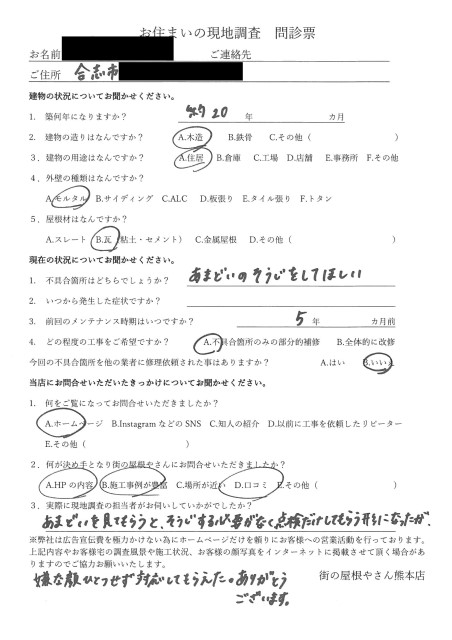 お住まいの現地調査 問診票
お名前 ご連絡先
ご住所 合志市
建物の状況についてお聞かせください。
1. 築何年になりますか? 約20 年 カ月
2. 建物の造りはなんですか? A.木造 B.鉄骨 C.その他( )
3．建物の用途はなんですか? A.住居 B.倉庫 C.工場 D.店舗 E.事務所 F.その他
4．外壁の種類はなんですか?
A.モルタル B.サイディング C.ALC D.板張り E.タイル張り F.トタン
5．屋根材はなんですか?
A.スレート B.瓦(粘土・セメント) C.金属屋根 D.その他( )
現在の状況についてお聞かせください。
1. 不具合箇所はどちらでしょうか? あまどいのそうじをしてほしい
2. いつから発生した症状ですか?
3. 前回のメンテナンス時期はいつですか? 5 年 カ月前
4. どの程度の工事をご希望ですか? A.不具合箇所のみの部分的補修 B.全体的に改修
今回の不具合箇所を他の業者に修理依頼された事はありますか? A.はい B.いいえ
当店にお問合せいただいたきっかけについてお聞かせください。
1. 何をご覧になってお問合せいただきましたか?
A.ホームページ B.Instagram などの SNS C.知人の紹介 D.以前に工事を依頼したリピーター
E.その他( )
2．何が決め手となり街の屋根やさんにお問合せいただきましたか?
A.HP の内容 B.施工事例が豊富 C.場所が近い D.口コミ E.その他( )
3．実際に現地調査の担当者がお伺いしていかがでしたか?
あまどいを見てもらうと、そうじする必要がなく点検だけしてもらう形になったが、
※弊社は広告宣伝費を極力かけない為にホームページだけを頼りにお客様への営業活動を行っております。
上記内容やお客様宅の調査風景や施工状況、お客様の顔写真をインターネットに掲載させて頂く場合があ
りますのでご協力お願いいたします。
嫌な顔ひとつせず対応してもらえた。ありがとう
ございます。
街の屋根やさん熊本店